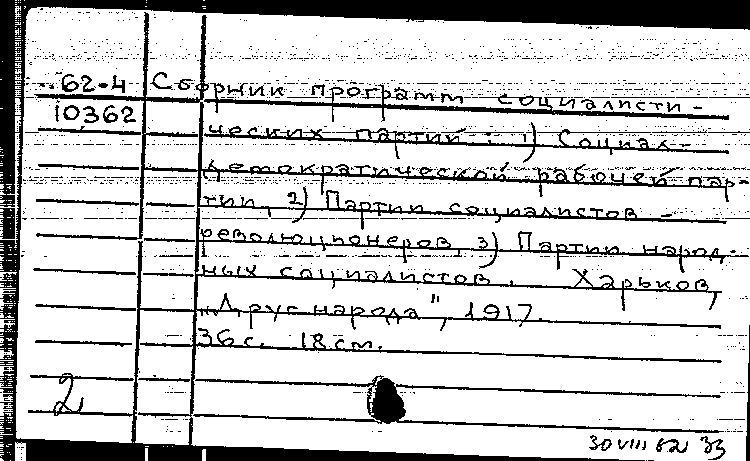 62-4 Сборник программ социалисти-
10362 ческих партий: 1) Социал-
демократической рабочей пар-
тии, 2) Партии социалистов -
революционеров, 3) Партии народ-
ных социалистов. Харьков,
„Друг народа", 1917.
36 с. 18 см.
2
30 VIII 62